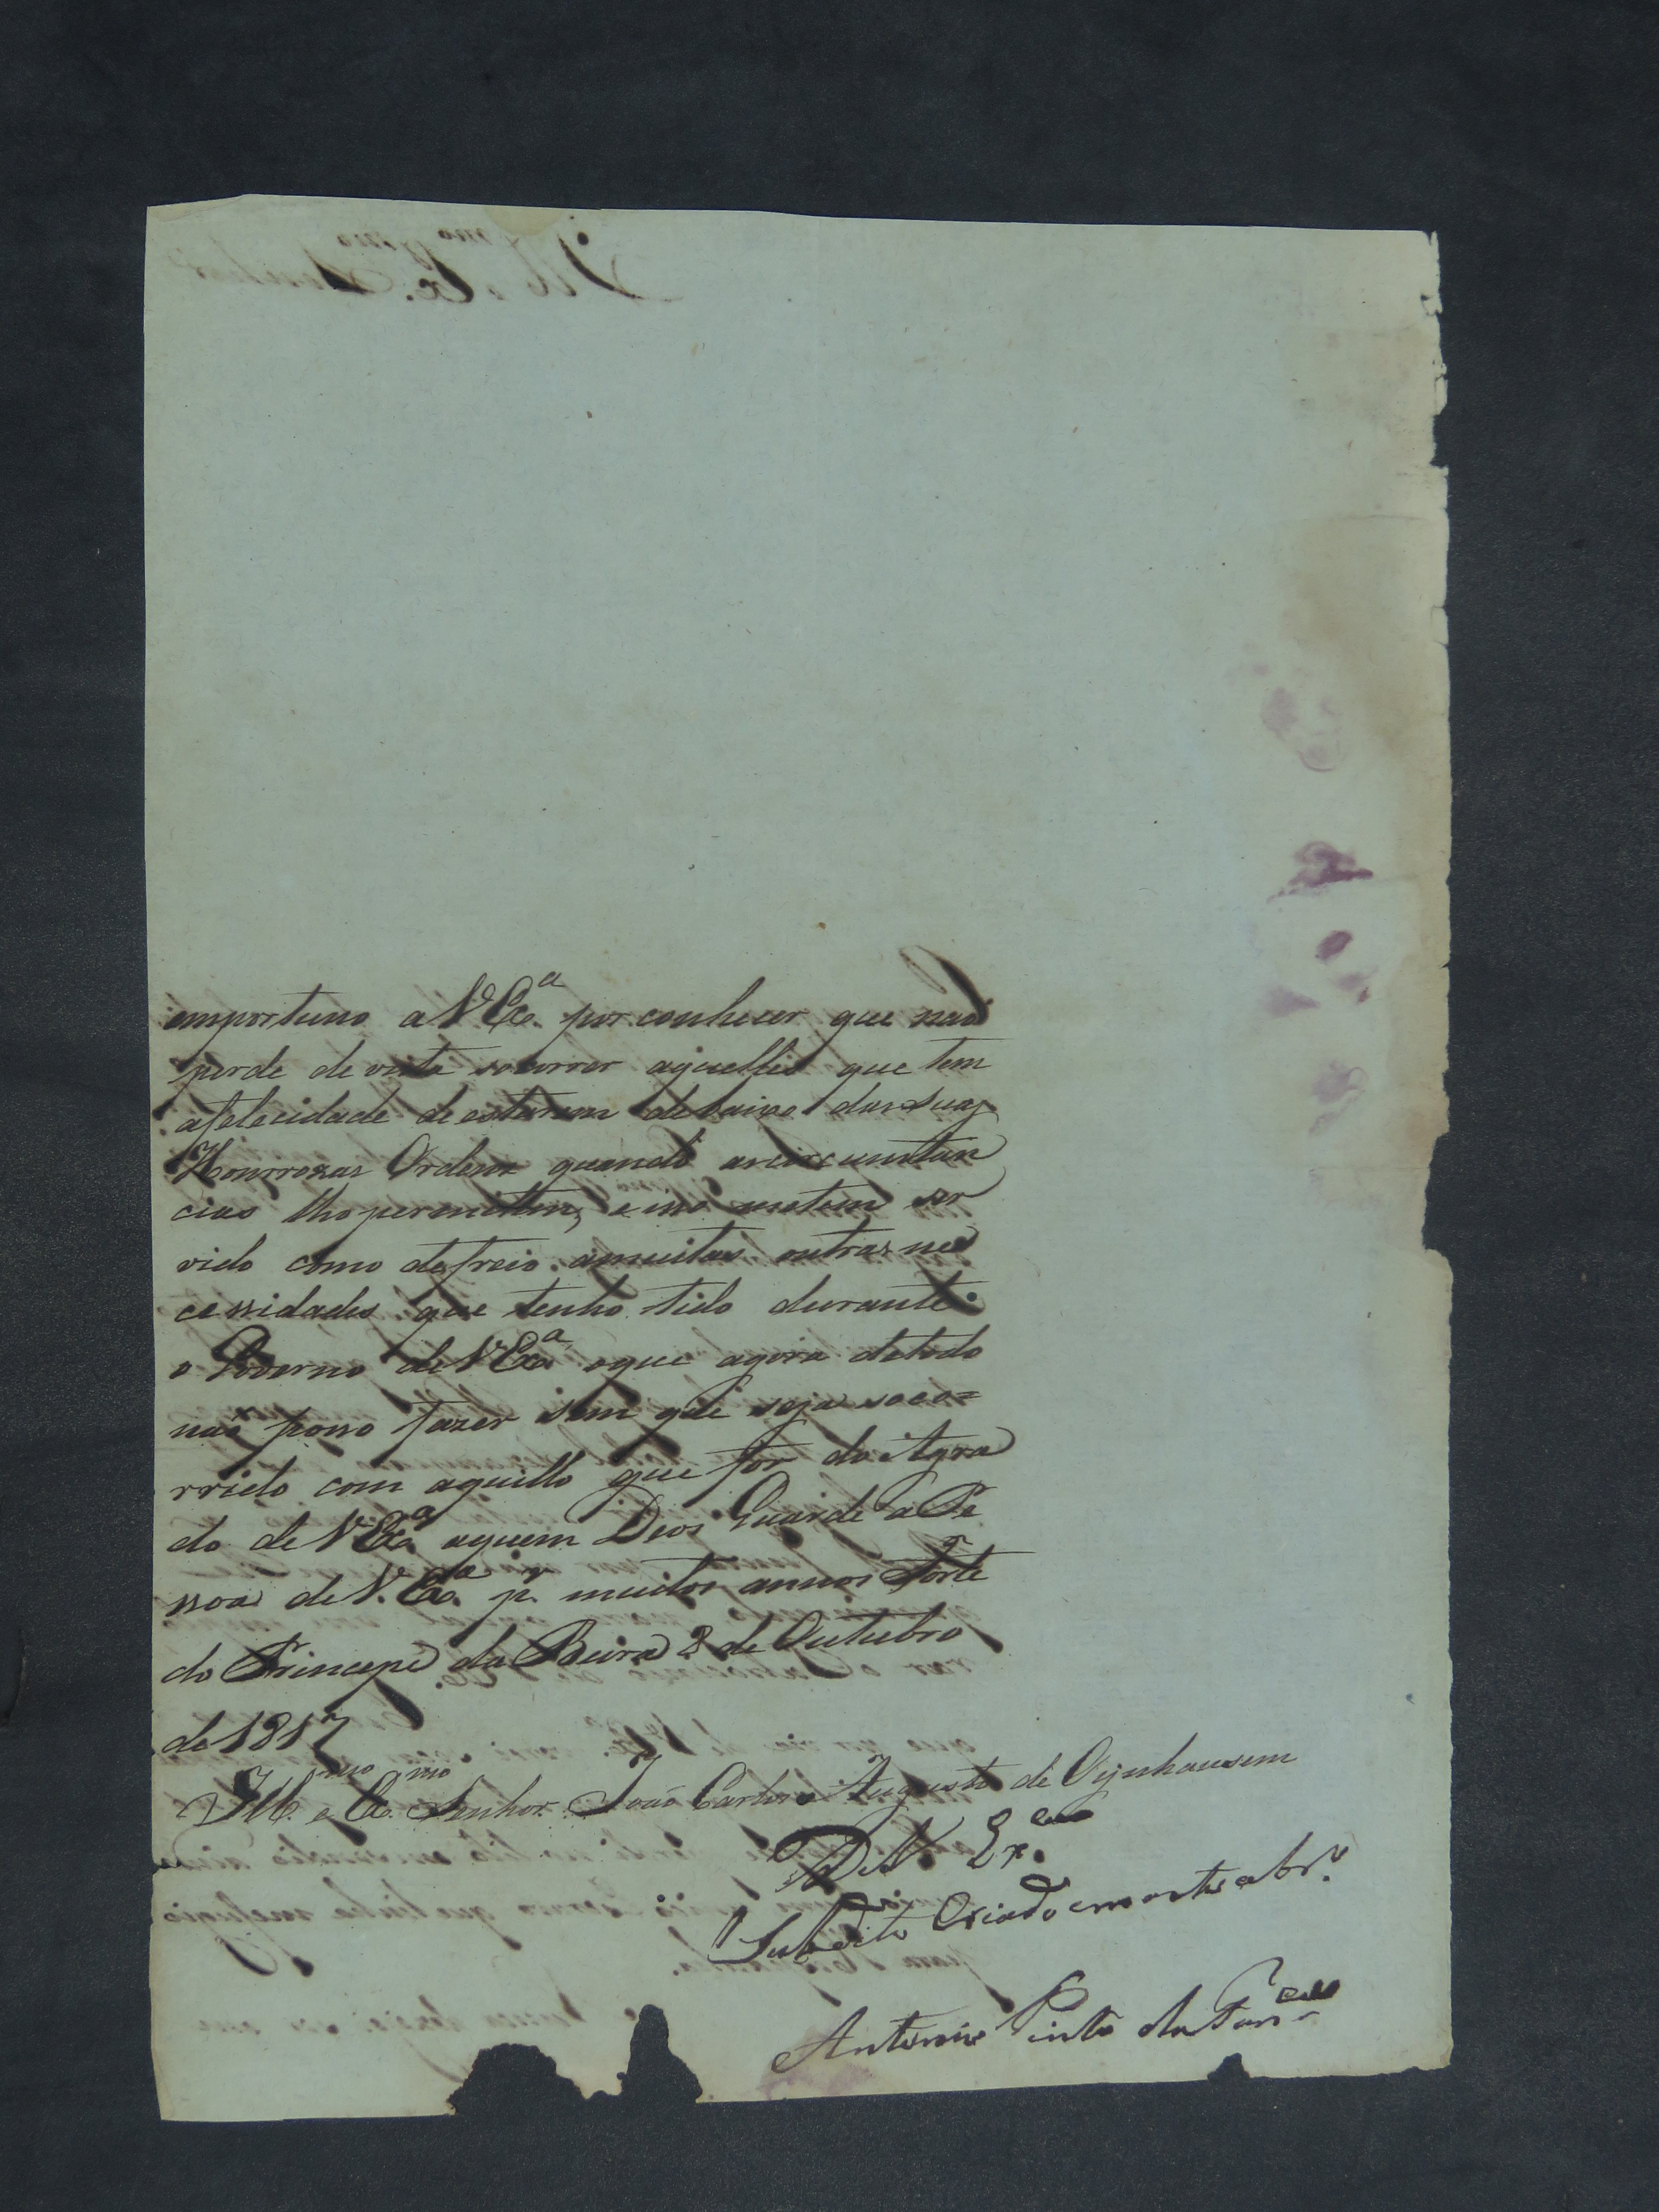 emportuno a V Ex.ª por conhecer que naõ
perde de vista socorrer aquelles que tem
afelecidade de estarem debaixo das suas
Honrrozas Ordens quando ascircumstan
cias lho permitem, e isso metem ser
vido como de freio amuitas outras ne
cessidades que tenho tido durante
o Governo de V Ex.ª oque agora detodo
naõ posso fazer sem que seja soco=
rrido com aquillo que for do Agra
do de V Ex.ª aquem Deos Guarde a Pe
ssoa de V. Ex.ª p.r muitos annos Forte
do Principe da Beira 8 de Outubro
de 1817
Ill.mo e Ex.mo Senhor Joaõ Carlos Augusto de Oeynhausem
De V Ex.cia
Subdito Criado e
Antonio Pinto da Fon.ca